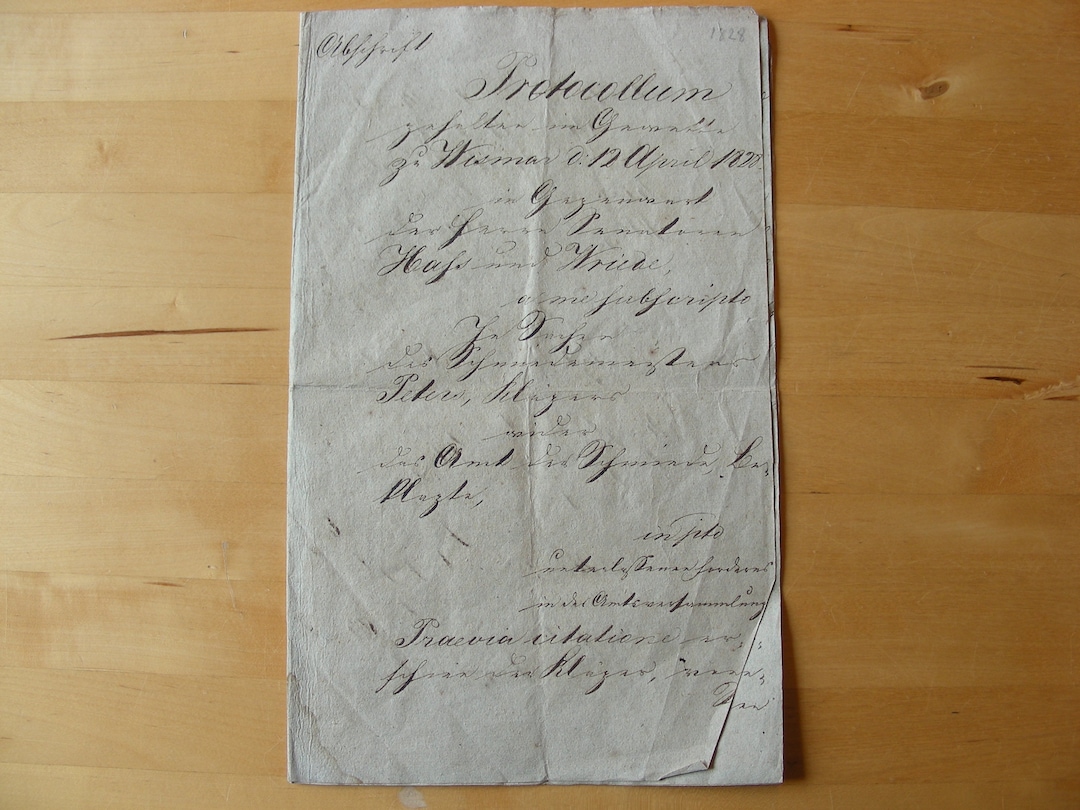 Abschrift
1828
Protocollum
gehalten im Gewette
zu Wismar d. 12 April 1828.
in Gegenwart
der Herren Senatoren
Hass und Wriede,
a me subscripto
In Sachen
des Schmiedemeisters
Peters, Klägers
wider
das Amt der Schmiede, Be-
klagte,
in pto
unterlassenen Forderns
in der Amtsversammlung
Praevia citatione er-
schien der Kläger,